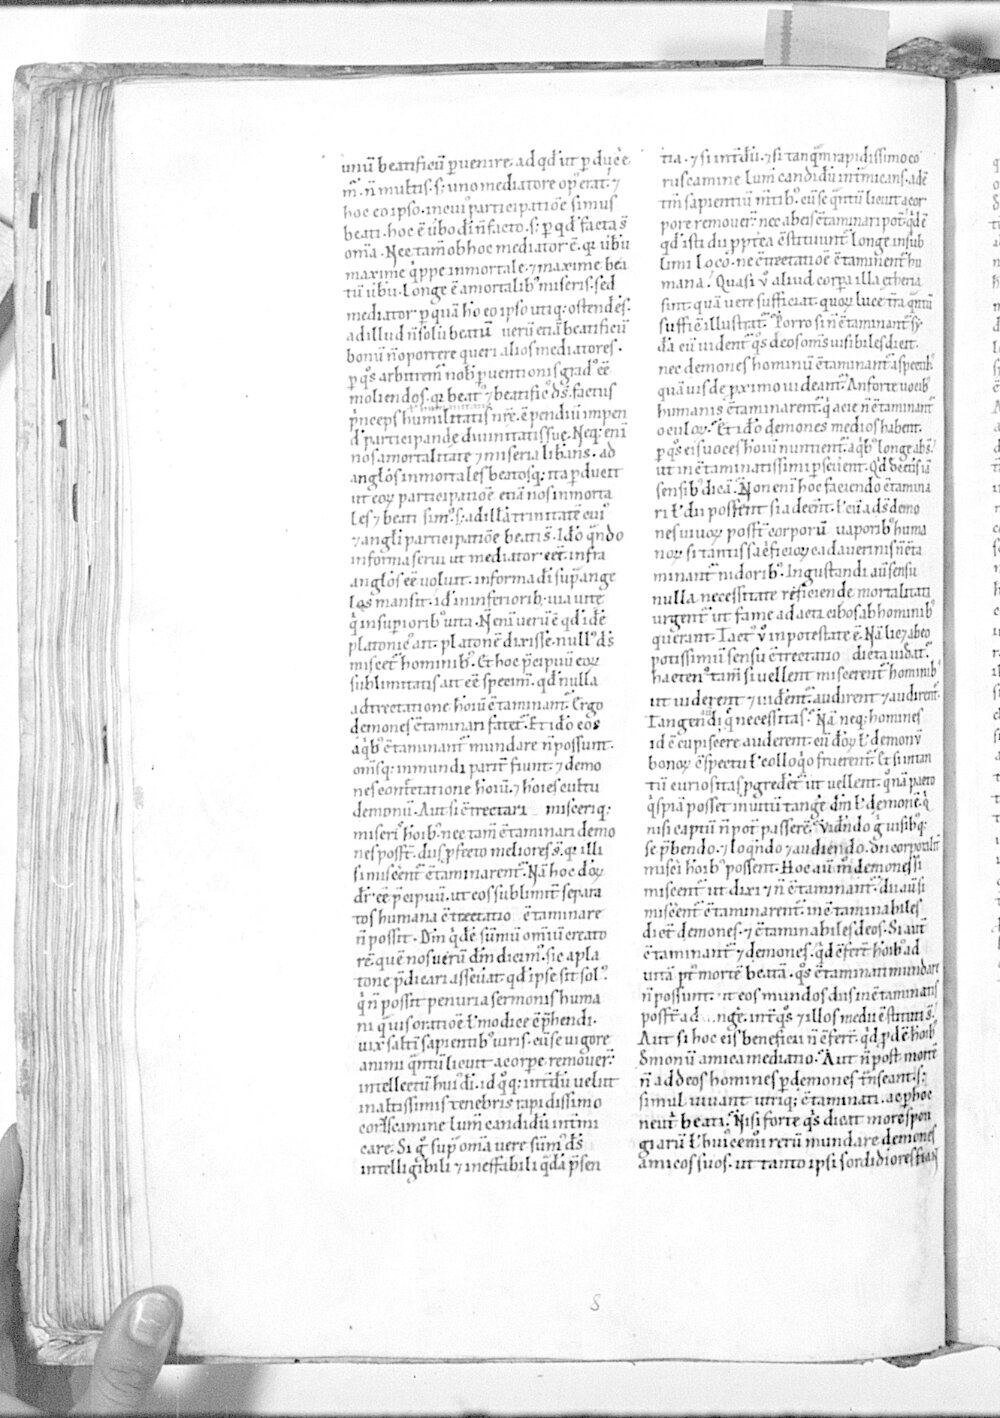 unū beatificū ꝑuenire. ad qđ ut ꝑducēē
m̄. n̄ multis. s; uno mediatore opꝰ erat. ⁊
hoc eo ipso. in cuiꝰ participatiōe simus
beati. hoc ē ūbo dī n̄ facto. s; ꝑ qđ facta s̄
om̄ia. Nec tam̄ ob hoc mediator ē. qr̄ ūbū
maxime q̇ppe inmortale. ⁊ maxime bea
tū ūbū. longe ē a mortalibꝰ miseris. sed
mediator ꝑ quā hō eo ipso utiq; ostendēs.
ad illud n̄ solū beatū uerū etiā beatificū
bonū n̄ oportere queri alios mediatores.
ꝑ q̊s arbitrem̄ nob̄ ꝑuentionis gradꝰ eē
moliendos. qr̄ beatꝰ ⁊ beatificꝰ d̄s. factus
n̄re. cōpendiū impen
dꝰ participande diuinitatis sue. Neq; enī
nos a mortalitate ⁊ miseria libans. ad
anglōs inmortales beatosq; ita ꝑducit
ut eoꝝ participatiōe etiā nos inmorta
les ⁊ beati simꝰ. s; ad illā trinitatē cuiꝰ
⁊ angli participatiōe beati s̄. Idō qn̄do
in forma serui ut mediator eēt. infra
anglōs eē uoluit. in forma dī suꝑ ange
los mansit. id in inferioribꝰ uia uite
q̇ in suꝑioribꝰ uita. N̄ enī uerū ē qđ idē
platonicꝰ ait. platonē dixisse. nullꝰ d̄s
miscet̄ hominibꝰ. Et hoc p̄cipuū eoꝝ
sublimitatis ait eē specim̄. qđ nulla
adtrectatione hoiū cōtaminant̄. Ergo
demones cōtaminari fatet̄. Et idō eos
a q̇bꝰ cōtaminant̄ mundare n̄ possunt.
om̄sq; inmundi parit̄ fiunt. ⁊ demo
nes cōtrectatione hoiū. ⁊ hoīes cultu
demonū. Aut si cōtrectari misceriq;
miserꝰ hoibꝰ. nec tam̄ cōtaminari demo
nes possꝉ. diis ꝓfecto meliores s̄. qr̄ illi
si miscēent cōtaminarent̄. Nā hoc doꝝ
dr̄ eē p̄cipuū. ut eos sublimit̄ separa
tos humana cōtrectatio cōtaminare
n̄ possit. Dm̄ q̇dē sūmū om̄iū creato
rē. quē nos uerū dm̄ dicimꝰ. sic a pla
tone p̄dicari asseūat. qđ ipse sit solꝰ.
q̇ n̄ possit penuria sermonis huma
ni q̇uis oratiōe ꝉ modice cōp̄hendi.
uix saltī sapientibꝰ uiris. cū se uigore
animi qn̄tū licuit a corꝑe remouer̄.
intellectū huiꝰ dī. id q̊q; intdū uelut
in altissimis tenebris rapidissimo
coruscamine lum̄ candidū intmi
care. Si g̊ supᵃ om̄ia uere sūm̄ d̄s
intelligibili ⁊ ineffabili q̇dā p̄sen
tia. ⁊ si int̄dū. ⁊ si tanqᵃm rapidissimo co
ruscamine lum̄ candidū intmicans. adē
tm̄ sapientiū m̄tibꝰ. cū se qn̄tū licuit a cor
pore remouer̄. nec ab eis cōtaminari pot̄. q̇d ē
qđ isti dii ꝓpterea cōstituunt̄ longe in sub
limi loco. ne cōtrectatiōe cōtaminent̄ hu
mana? Quasi ū aliud corꝑa illa etheria
sint. quā uere sufficiat. quoꝝ luce tra qn̄tū
sufficit illustrat̄. Porro si n̄ cōtaminant̄ sy
dꝰa cū uident̄. q̊s deos om̄s uisibiles dicit.
nec demones hominū cōtaminant̄ aspectibꝰ
quāuis de ꝓximo uideant̄. An forte uocibꝰ
humanis cōtaminarent̄. q̇ acie n̄ cōtaminant̄
oculoꝝ. Et idō demones medios habent.
ꝑ q̊s eis uoces hoiū nuntient̄. a q̇bꝰ longe abs̄.
ut incōtaminatissimi ꝑseūent. Qd de cet̄is iā
sensibꝰ dicā. Non enī hoc faciendo cōtamina
ri ꝉ dii possent si adeēnt. ꝉ cū ads̄ demo
nes uiuoꝝ possꝉ corporū uaporibꝰ huma
noꝝ. si tantis sac̄ficioꝝ cadauerinis n̄ cōta
minant̄ nidoribꝰ. In gustandi aū sensu
nulla necessitate reficiende mortalitati
urgent̄. ut fame adacti cibos ab hominibꝰ
querant. Tactꝰ ū in potestate ē. Nā licꝫ ab eo
potissimū sensu cōtrectatio dicta uideat̄.
hactenꝰ tam̄ si uellent miscerent̄ hominibꝰ
ut uiderent ⁊ uidēent̄. audirent ⁊ audirent̄.
Tangendi aū q̄ necessitas? Nā neq; homines
id cōcupiscere auderent. cū doꝝ ꝉ demonū
bonoꝝ cōspectu ꝉ colloq̇o fruerent̄. Et si intan
tū curiositas ꝓgrederet̄ ut uellent. q̊nā pacto
q̇spiā posset inuitū tangē dm̄ ꝉ demonē. q̇
nisi captū n̄ pot̄ passerē. Vidndo g̊ uisibꝰq;
se p̄bendo. ⁊ loq̄ndo ⁊ audiendo. dii corporalit̄
misc̄i hoibꝰ possent. Hoc aū m̊ demones si
miscent̄ ut dixi ⁊ n̄ cōtaminant̄. dii aū si
miscēent̄ cōtaminarent̄. incōtaminabiles
dicꝉ demones. ⁊ cōtaminabiles deos. Si aut̄
cōtaminant̄ ⁊ demones. q̇d cōferꝉ hoibꝰ ad
uitā pꝰ mortē beatā. q̊s cōtaminati mundare
n̄ possunt. ut eos mundos diis incōtaminatis
possꝉ ad . .ngē. int̄ q̊s ⁊ illos medii cōstituti s̄.
Aut si hoc eis beneficii n̄ cōferꝉ. q̇d ꝓdē hoibꝰ
demonū amica mediatio. An ut n̄ post mortē
n̄ ad deos homines ꝑ demones tn̄seant. s;
simul uiuant utriq; cōtaminati. ac ꝑ hoc
neut̄ beati. Nisi forte q̇s dicat more spon
giarū ꝉ huiꝰcemꝰi rerū mundare demones
amicos suos. ut tanto ipsi sordidiores fiant
8